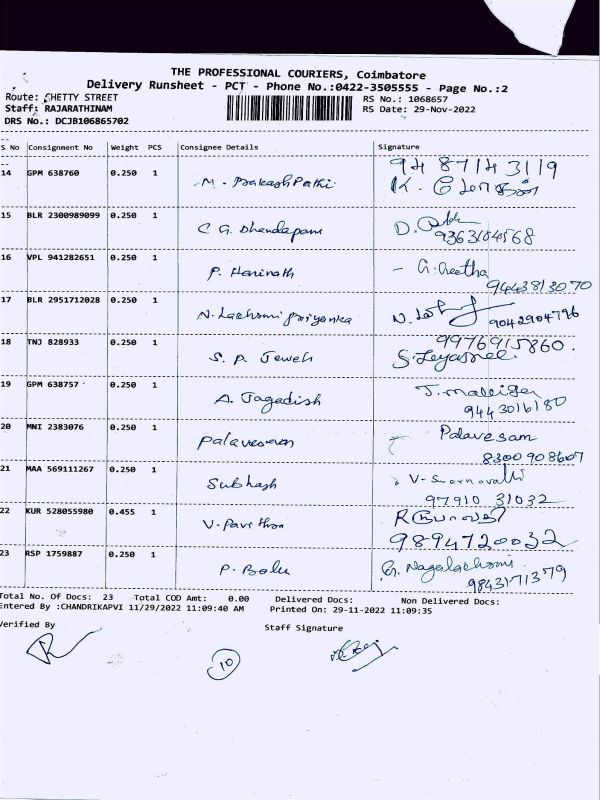 THE PROFESSIONAL COURIERS, Coimbatore
Delivery Runsheet - PCT - Phone No.:0422-3505555 - Page No.:2
Route: CHETTY STREET RS No.: 1068657
Staff: RAJARATHINAM RS Date: 29-Nov-2022
DRS No.: DCJB106865702
S No Consignment No Weight PCS Consignee Details Signature
94 87143119
14 GPM 638760 0.250 1 M. PrakashPathi K.
15 BLR 2300989099 0.250 1 C G. Dhandapani D.
9363184568
16 VPL 941282651 0.250 1 P. Harinath - G. Geetha
9443813070
17 BLR 2951712028 0.250 1 N. Lachsmi priyanka N.
9042904796
9976915860.
18 TNJ 828933 0.250 1 S. P. Jewels S. Jeyasree.
19 GPM 638757 0.250 1 A. Jagadish J.
9443016180
20 MNI 2383076 0.250 1 Palavesam Palavesam
8300908607
21 MAA 569111267 0.250 1 Subhash V-
97910 31032
22 KUR 528055980 0.455 1 V. Pavithra
9894720032
23 RSP 1759887 0.250 1 P. Balu G. Nagalachsmi
9843171379
Total No. Of Docs: 23 Total COD Amt: 0.00 Delivered Docs: Non Delivered Docs:
Entered By :CHANDRIKAPVI 11/29/2022 11:09:40 AM Printed On: 29-11-2022 11:09:35
Verified By Staff Signature
10